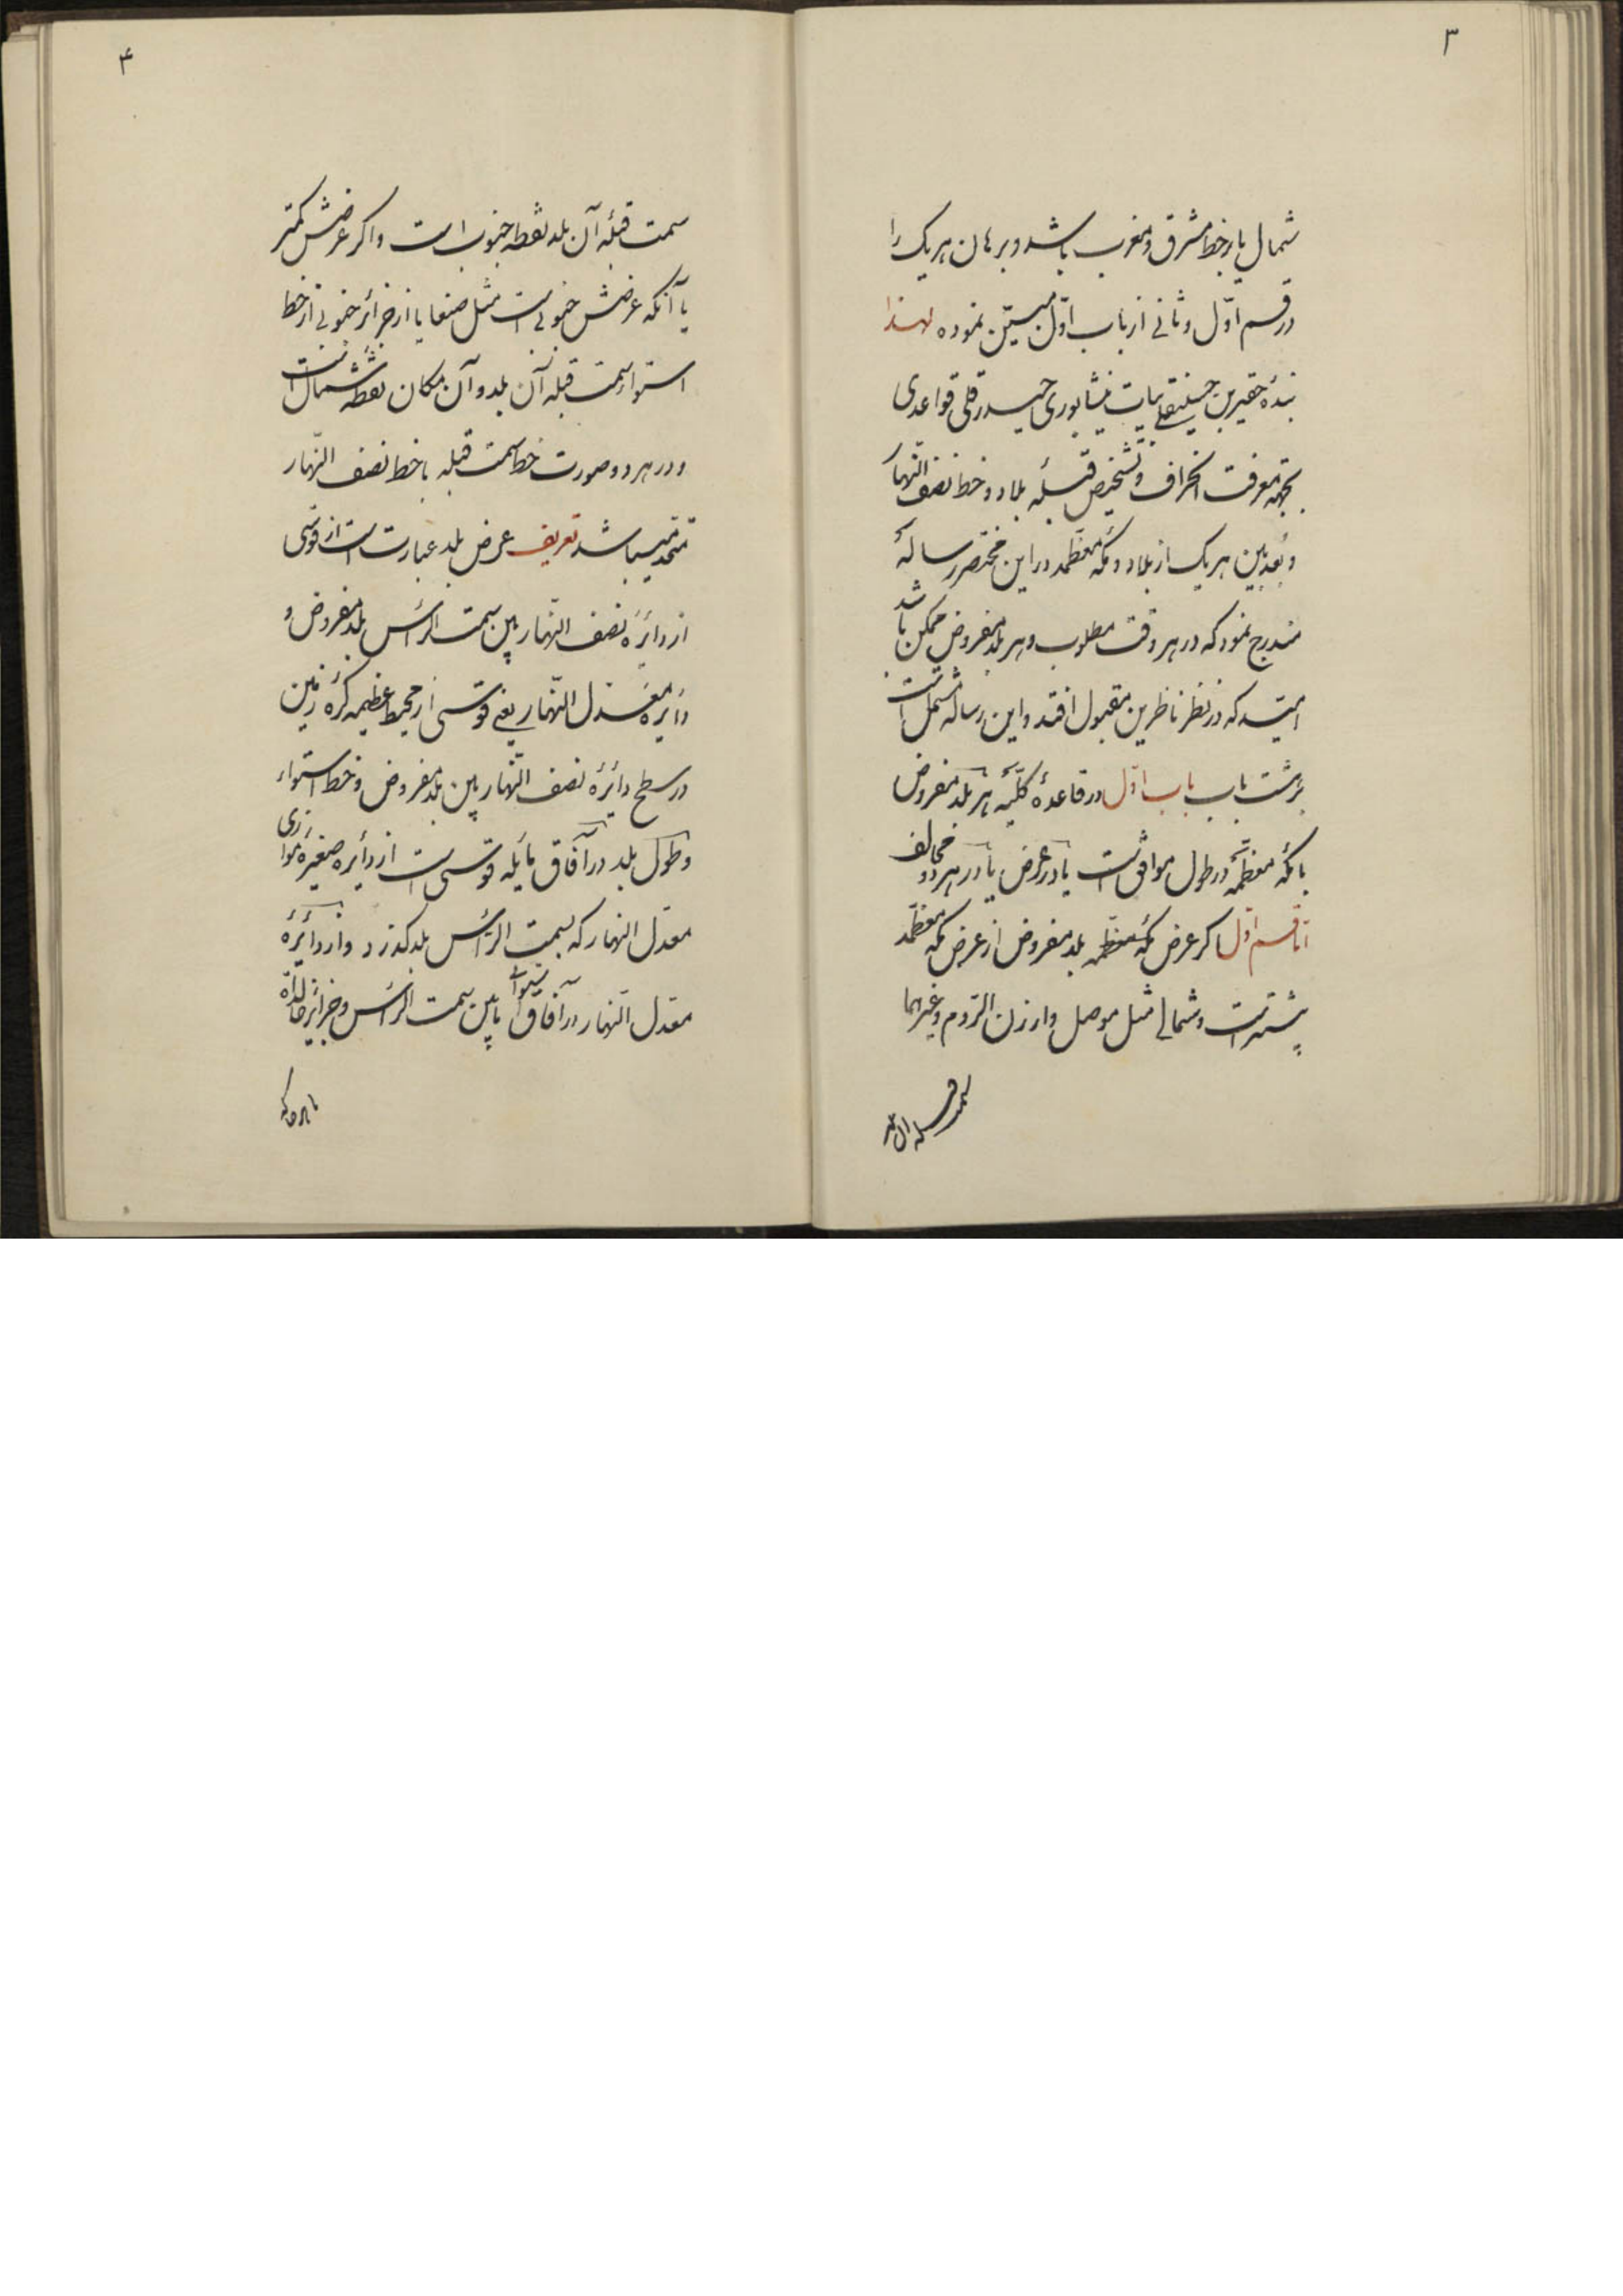 ۳
شمال یا بر خط مشرق و مغرب باشد و برهان هر یک را
در قسم اوّل و ثانی از باب اوّل مبیّن نموده لهذا
بندهٔ حقیر بن حسینقلی بیات نیشابوری حیدرقلی قواعدی
بجهة معرفت انحراف و تشخیص قبله بلاد و خط نصف النّهار
و بُعد بین هر یک از بلاد و مکّه معظّمه در این مختصر رسالهٔ
مندرج نمود که در هر وقت مطلوب و هر بلد مفروض ممکن باشد
امید که در نظر ناظرین مقبول افتد و این رساله مشتمل است
بر هشت باب باب اوّل در قاعدهٔ کلّیّه هر بلد مفروض
با مکّه معظّمه در طول موافق است یا در عرض یا در هر دو مخالف
امّا قسم اوّل اکر عرض مکّه معظّمه بلد مفروض از عرض مکّه معظّمه
بیشتر است و شمالی مثل موصل و ارزن الرّوم و غیرهما
سمت قبله آن بلد
۴
سمت قبلهٔ آن بلد نقطه جنوب است و اکر عرضش کمتر
یا آنکه عرضش جنوبی است مثل صنعا یا از جزائر جنوبی از خط
استوا سمت قبله آن بلد و آن مکان نقطه شمال است
و در هر دو صورت خط سمت قبله با خط نصف النّهار
متّحد میباشد تعریف عرض بلد عبارت است از قوسی
از دائرهٔ نصف النّهار بین سمت الرّأس بلد مفروض و
دائرهٔ معدّل النّهار یعنی قوسی از محیط عظیمه کرهٔ زمین
در سطح دائرهٔ نصف النّهار بین بلد مفروض و خط استواء
و طول بلد در آفاق مایله قوسی است از دائره صغیرهٔ موازی
معدّل النهار که بسمت الرّأس بلد کذرد و از دائرهٔ
معدّل النّهار در آفاق استوا ما بین سمت الرّأس و جزائر خالدات